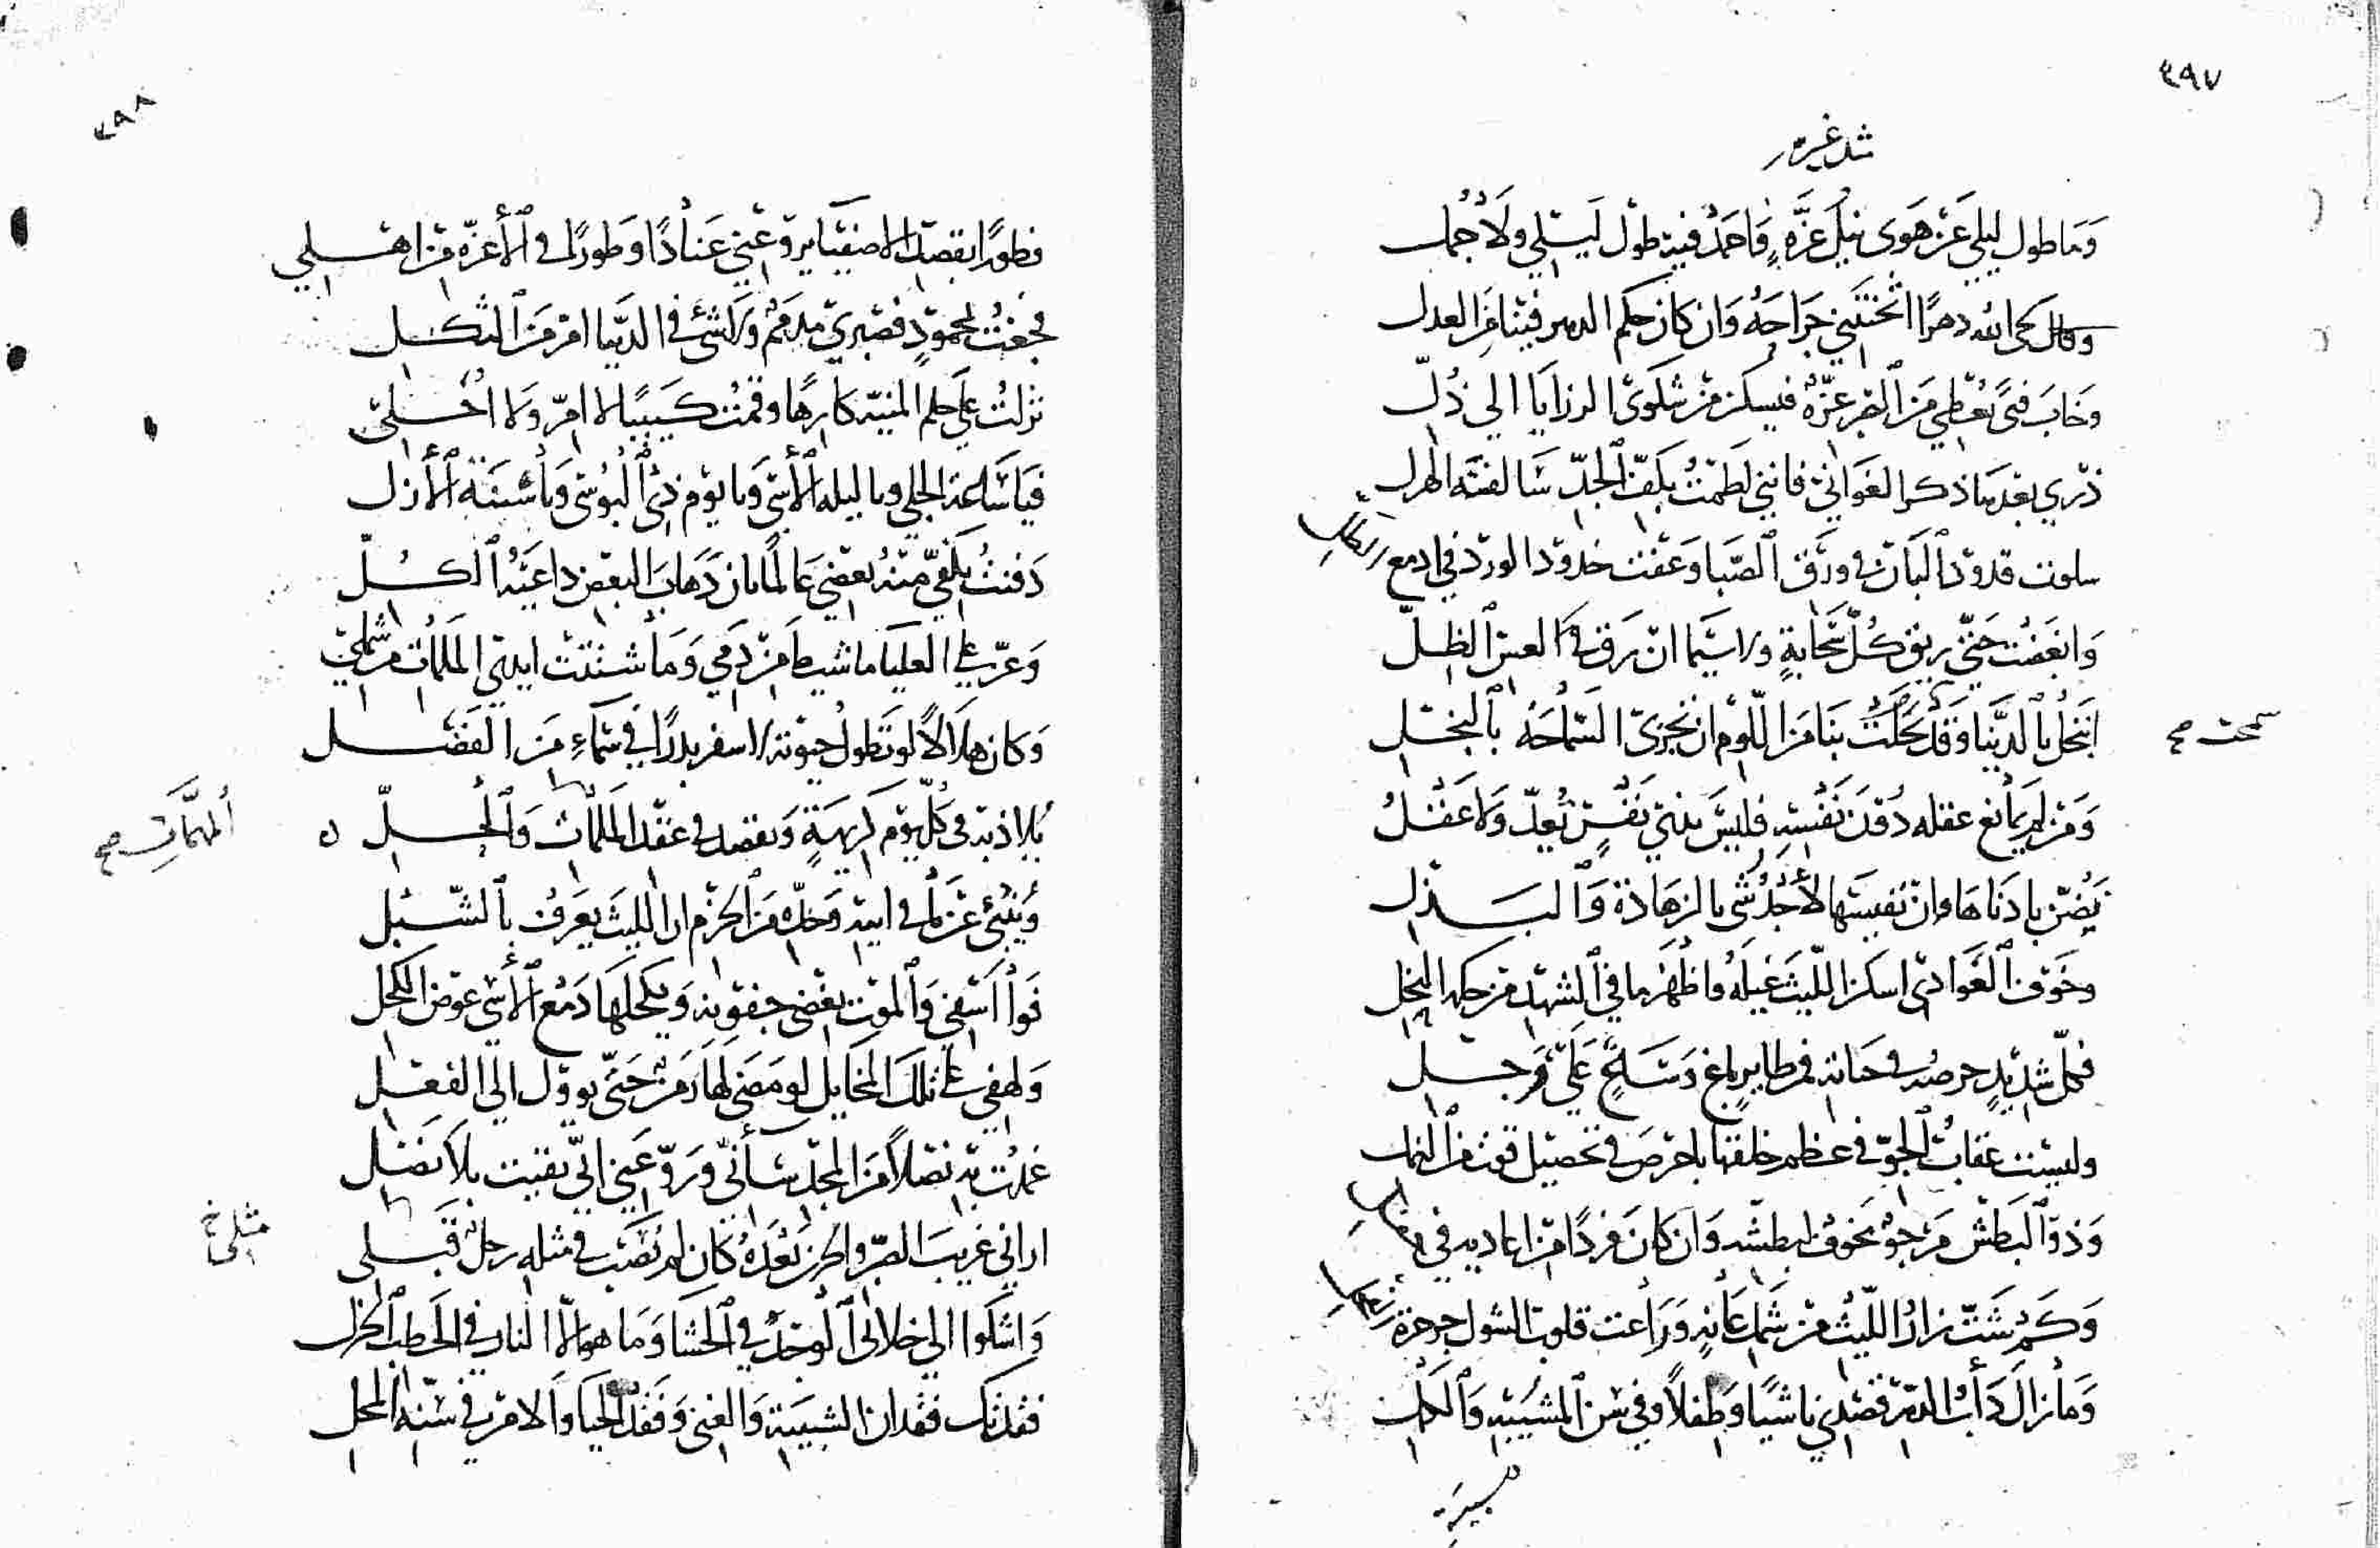 ٤٩٧
وما طول ليلي عن هوى نيل عزة فاحمد فيه طول ليلي ولا جمل
دهرا اثخنتني جراحه وان كان حكم الدهر فينا من العدل
وخاب فتى يعطي من القبر عزه فيسكن من شكوى الرزايا الى ذل
ذري بعدها ذكر الغواني فانني لطمت بكف الجد سالفة الهزل
سلوت قدود البان في ورق الصبا وعفت خدود الورد في ادمع الطل
وابغضت حتى ريق كل سحابة ولا سيما ان رق في العين الظل
ابنخل بالدنيا وقد بنا من اللوم ان تجزى السماحة بالبخل
سمحت صح
ومن لم عقله دون نفسه فليس بذي نفس تعد ولا عقل
يضن بادناها وان نفيسها لأجدر شي بالزهادة والبذل
وخوف الغوادي اسكن الليث غيله واظهر ما في الشهد من حكمة النحل
شديد حرصه في حياته
وليست عقاب الجو في عظم خلقها باحرص في تحصيل قوت من النمل
وذو البطش مرجو مخوف لبطشه وان كان فردا من اياديه في
وكم شت زار الليث من شمل عانه وراعت قلوب الشول جرجرة الفحل
وما زال دأب الدهر قصدي ناشيا وطفلا وفي سن المشيب والكهل
٤٩٨
فطورا يروعني عنادا وطورا في الأعزة من اهلي
فجعت بمحمود فصبري مذمم ولا شئ في الدنيا امر من الثكل
نزلت على حكم المنية كارها وقمت كئيبا لا امر ولا احلي
فيا ساعة الجلى ويا ليلة الأسى ويا يوم ذي البؤسى ويا سنة الأزل
دفنت بكفي منه بعضي عالما بان ذهاب البعض داعية الكل
وعز على العليا ما شيط من دمي وما شتتت ايدي الملمات من شملي
وكان هلالا لو تطول حيوته لاسفر بدرا في سماء من الفضل
يلاذ به في كل يوم كريهة ويقصد في عقد الملمات والحل
المهمات صح
وينبئ عن ما في ابيه وجده من الكرم ان الليث يعرف بالشبل
فوا اسفي والموت يغضي جفونه ويكحلها دمع الأسى عوض الكحل
ولهفي على تلك المخايل لو مضى لها زمن حتى يوول الى الفعل
غمدت به نصلا من المجد ساءني وروعني اني بقيت بلا نصل
اراني غريب الصبر والحزن بعده كان لم يصب في مثله رجل قبلي
مثلي خ
واشكوا الى خلاني الوجد في الحشا وما هو الا النار في الحطب الجزل
فقدتك فقدان الشبيبة والغنى وفقد الحيا والامن في سنة المحل